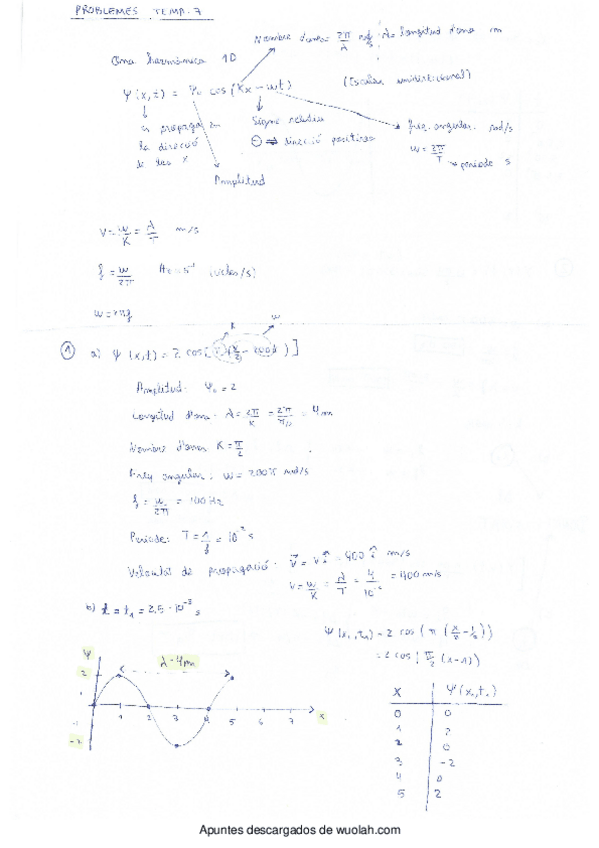 PROBLEMES TEMA-7
Nombre d'ona 2π/λ rad/m λ longitud d'ona m
Ona harmònica 1D
Ψ(x,t) = Ψ₀ cos(Kx - wt) (Escalar unidireccional)
es propaga en
la direcció
de l'eix x
Signe
⊖ ⇒ direcció positiva
freq. angular rad/s
w = 2π/T → període s
Amplitud
v = w/K = λ/T m/s
f = w/2π Hz = s⁻¹ (cicles/s)
w = 2πf
K w
① a) Ψ(x,t) = 2 cos[π(x/2 - 200t)]
Amplitud: Ψ₀ = 2
Longitud d'ona: λ = 2π/K = 2π/π/2 = 4m
Nombre d'ones K = π/2
Freq angular: w = 200π rad/s
f = w/2π = 100Hz
Període: T = 1/f = 10⁻² s
Velocitat de propagació: v⃗ = v î = 400 î m/s
v = w/K = λ/T = 4/10⁻² = 400 m/s
b) t = t₁ = 2,5·10⁻³ s
Ψ(x,t₁) = 2 cos(π(x/2 - 1/2))
= 2 cos(π/2 (x-1))
Ψ
λ=4m
2
-2
1 2 3 4 5 6 7 x
x Ψ(x,t₁)
0 0
1 2
2 0
3 -2
4 0
5 2
Apuntes descargados de wuolah.com